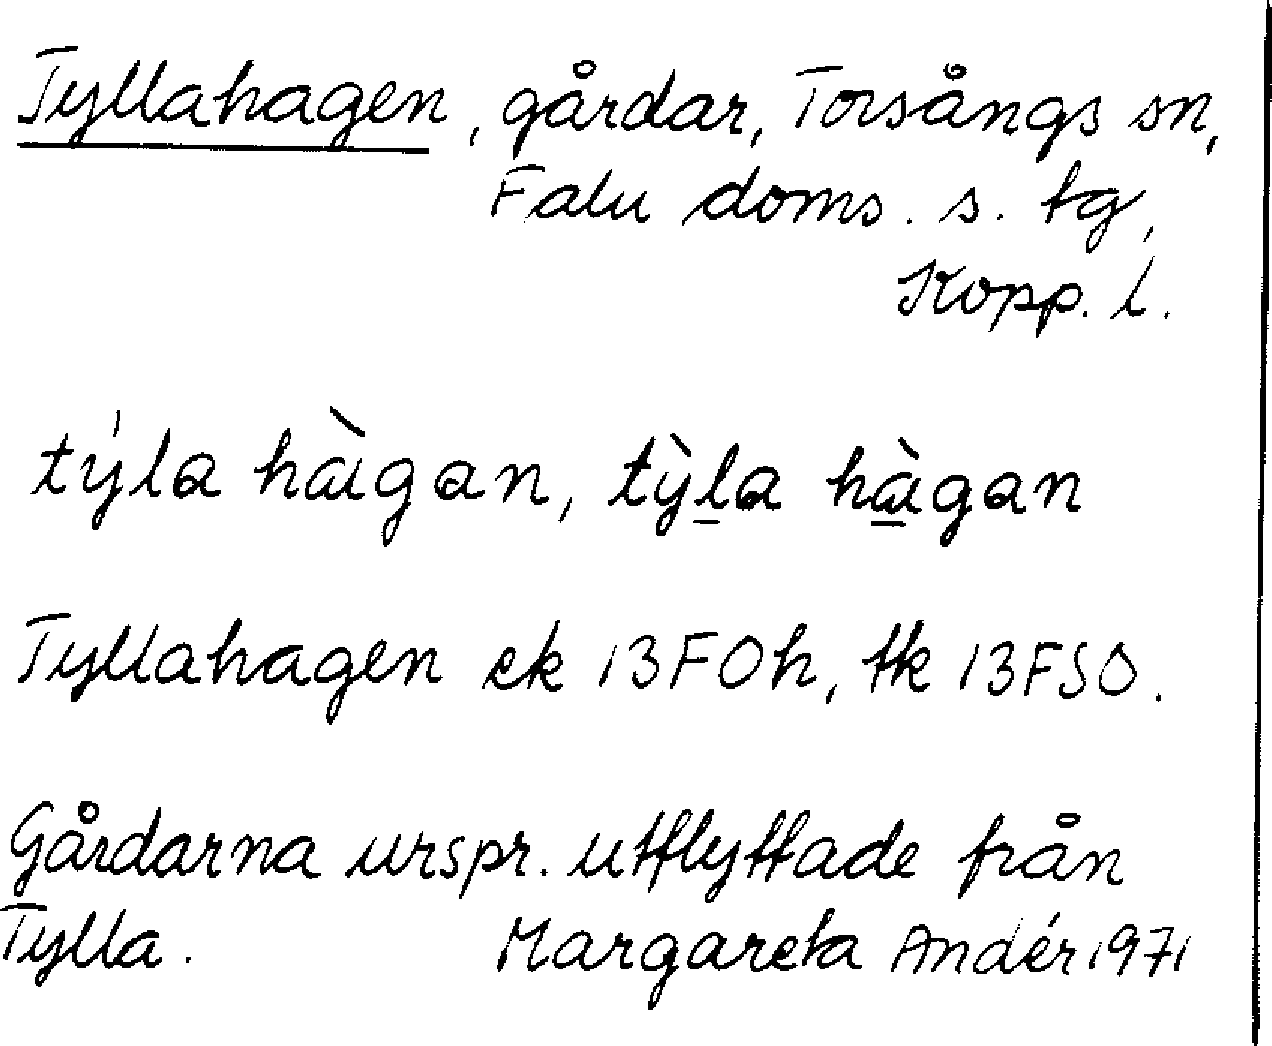 Tyllahagen, gårdar, Torsångs sn,
Falu doms. s. tg,
Kopp. l.
týla hàgan, tỳla hàgan
Tyllahagen ek 13F0h, tk 13FSO.
Gårdarna urspr. utflyttade från
Tylla. Margareta Andér 1971